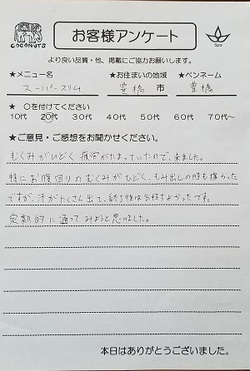 COCONUTS
お客様アンケート
より良い品質・他、掲載にご協力お願いします。
★メニュー名 ★お住まいの地域 ★ペンネーム
スーパースリム 豊橋 市 豊橋
★ ○を付けてください
10代 20代 30代 40代 50代 60代 70代
★ご意見・ご感想をお聞かせください。
むくみがひどく 疲労がたまっていたので、来ました。
特にお腹回りのむくみがひどく、もみ出しの時も痛かった
ですが、汗がたくさん出て、終了後は気持ちよかったです。
定期的に通ってみようと思いました。
本日はありがとうございました。